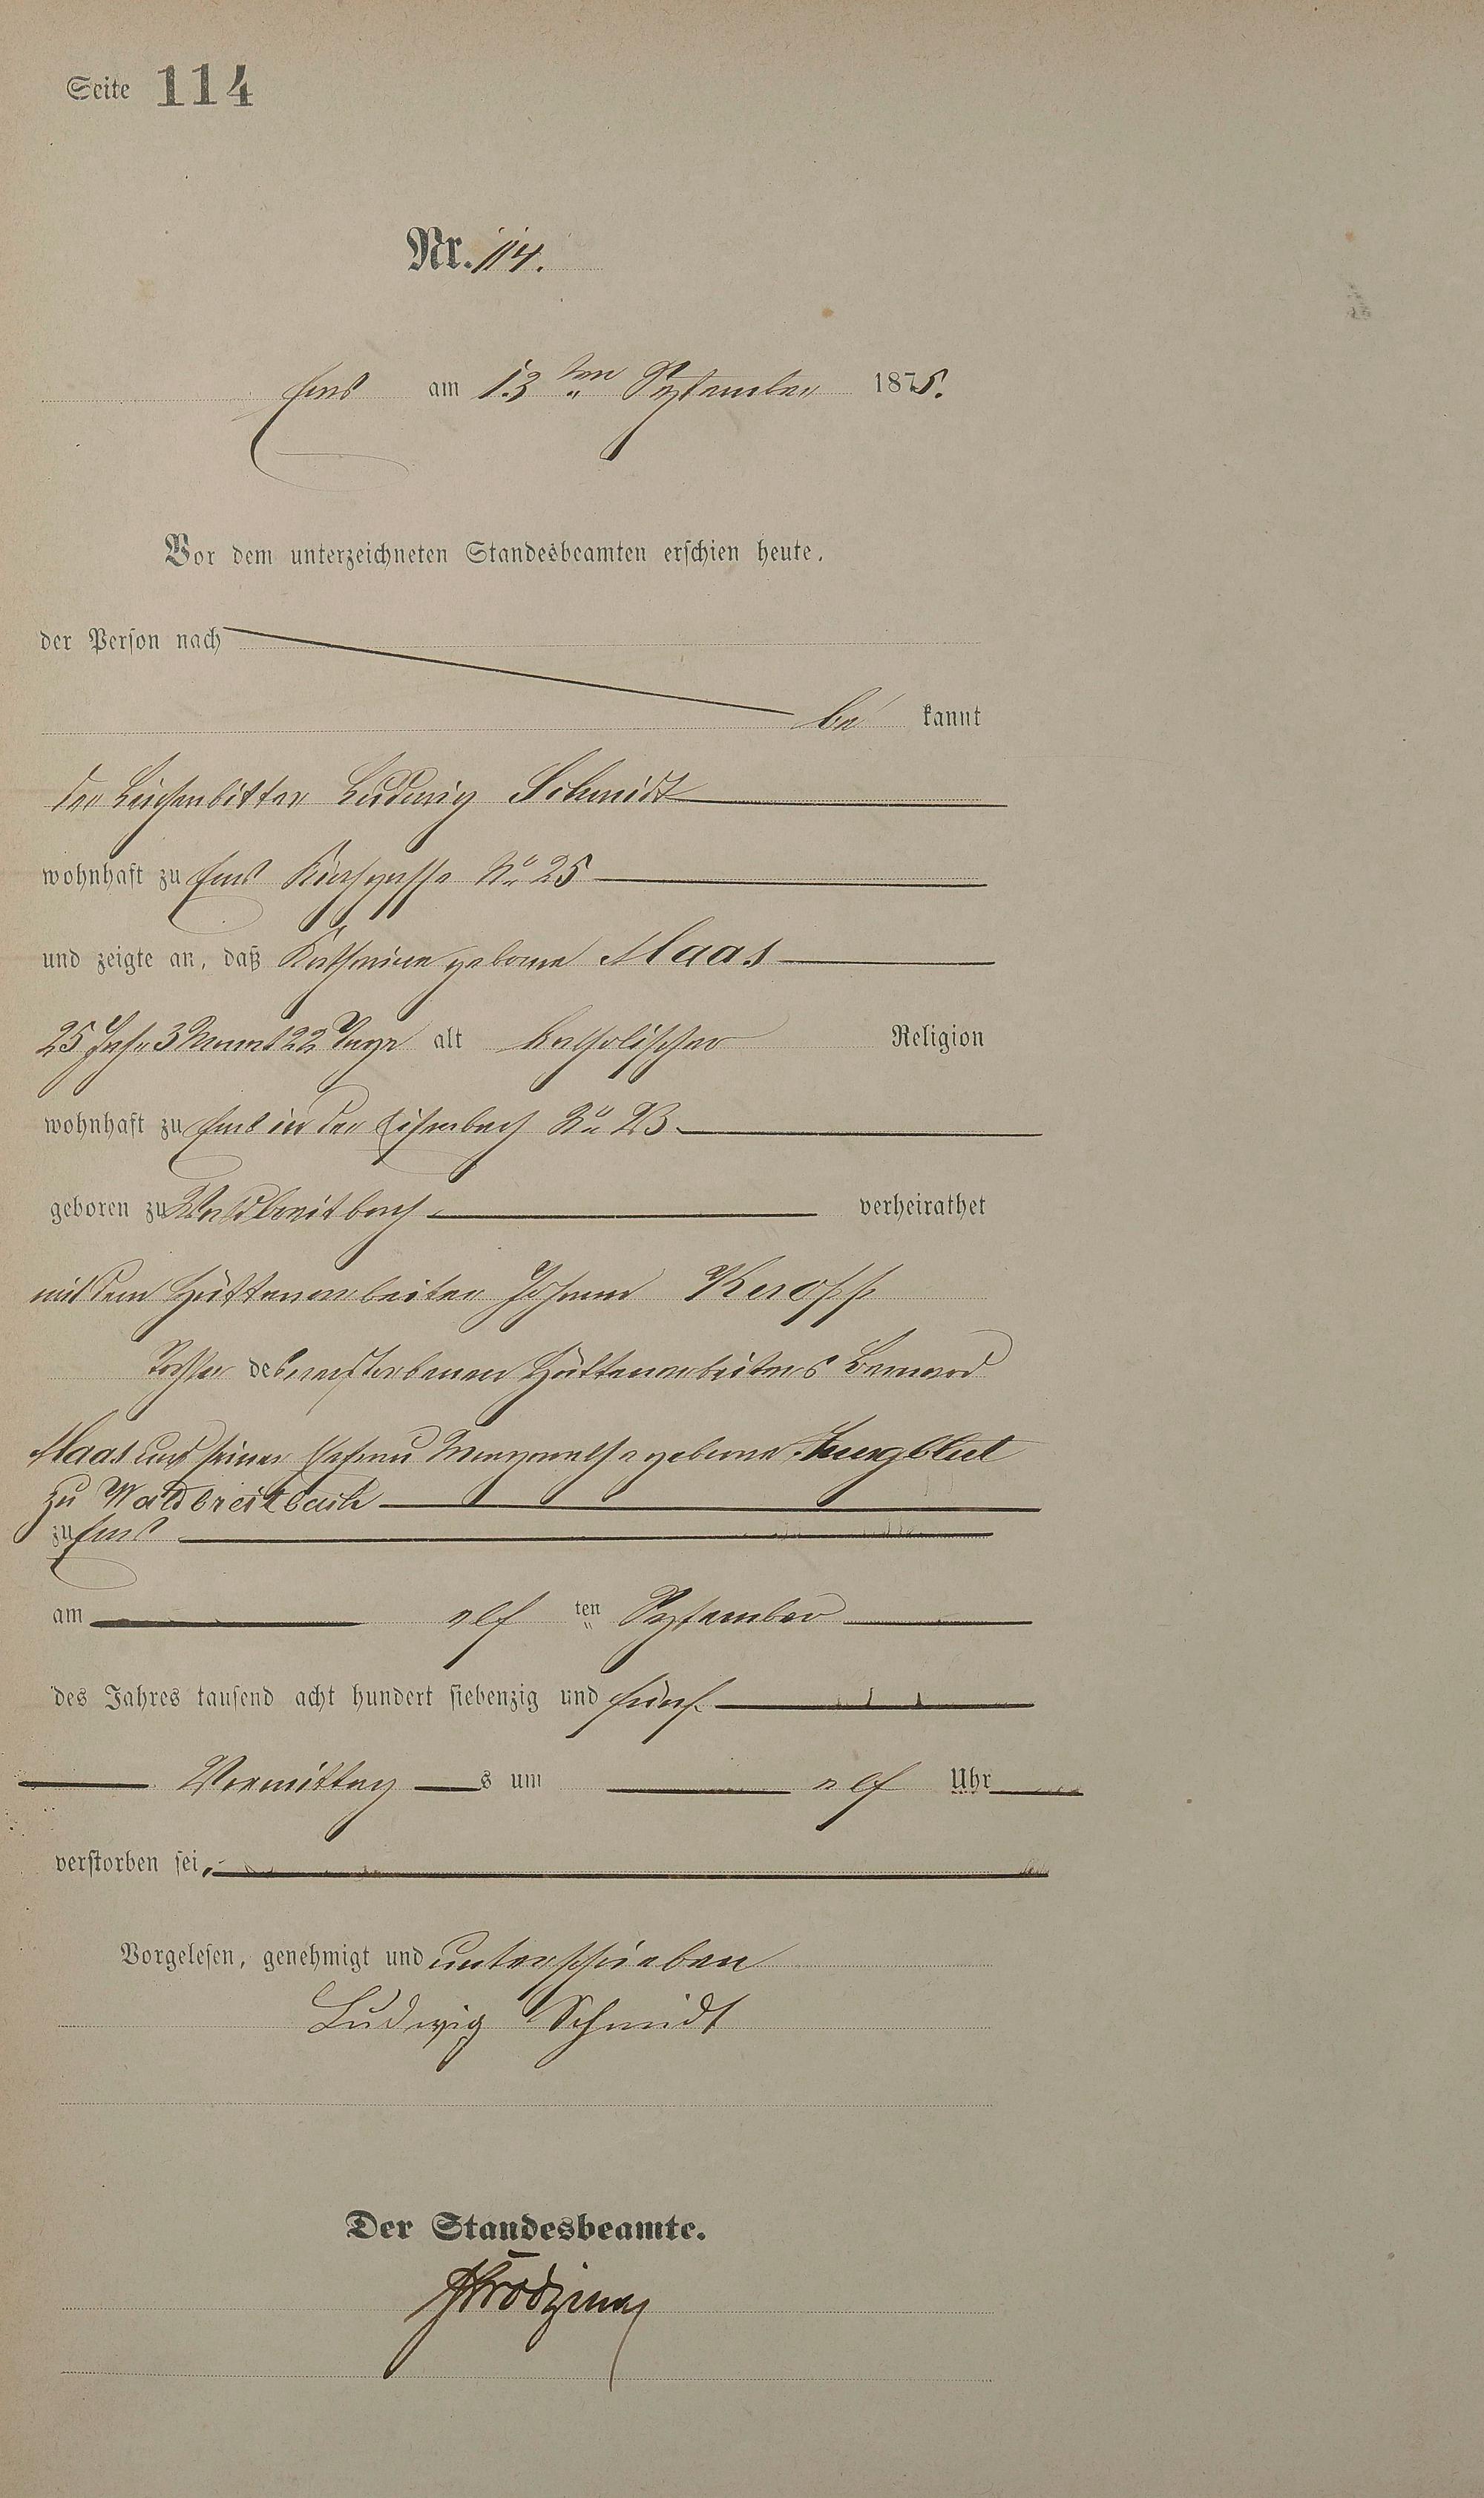 Seite 114
Nr. 114.
Ems am 13ten September 1875.
Vor dem unterzeichneten Standesbeamten erschien heute,
der Person nach
be kannt
der Leichenbitter Ludwig Schmidt
wohnhaft zu Ems Kirchgasse No 25
und zeigte an, daß Katharine geborne Maas
25 Jahr 3 Monat 22 Tage alt katholischer Religion
wohnhaft zu Ems in der No
geboren zu Waldbreitbach verheirathet
mit dem Hüttenarbeiter Johann
Tochter des verstorbenen Hüttenarbeiters Bernard
Maas und seiner Ehefrau geborne Jungblut
zu Waldbreitbach
zu Ems
am elf ten September
des Jahres tausend acht hundert siebenzig und fünf
Vormittag s um elf Uhr
verstorben sei.
Vorgelesen, genehmigt und unterschrieben
Ludwig Schmidt
Der Standesbeamte.